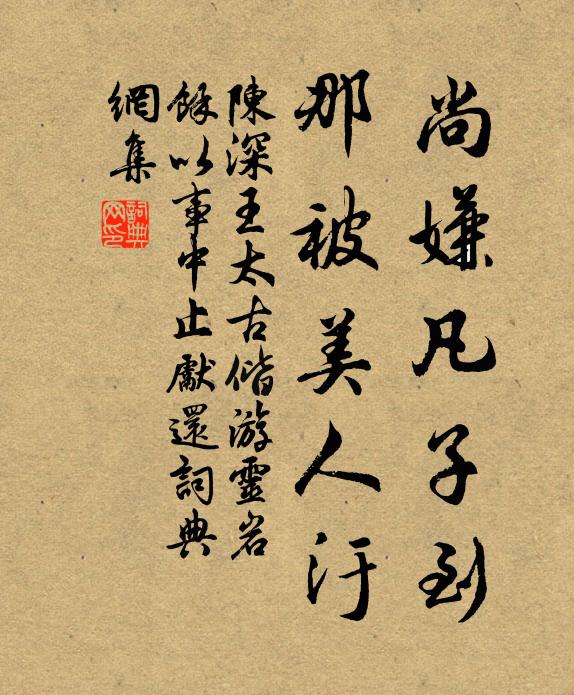 尚嫌凡子到
那被美人汙
陳深王太古偕游靈岩
餘以事中止獻還詞典
網集
詞典網印